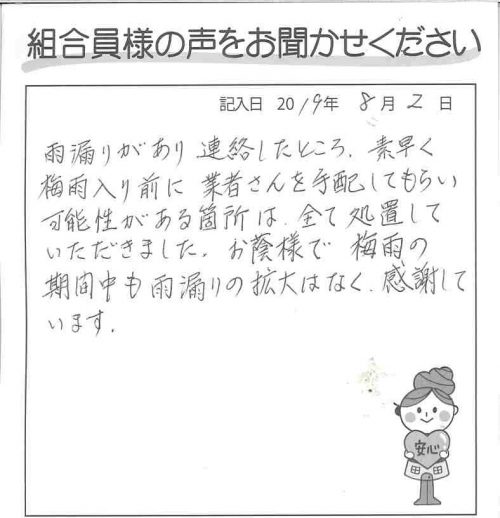 組合員様の声をお聞かせください
記入日 2019年 8月 2日
雨漏りがあり 連絡したところ、素早く
梅雨入り前に 業者さんを手配してもらい
可能性がある箇所は、全て処置して
いただきました。お蔭様で 梅雨の
期間中も雨漏りの拡大はなく、感謝して
います。
安心